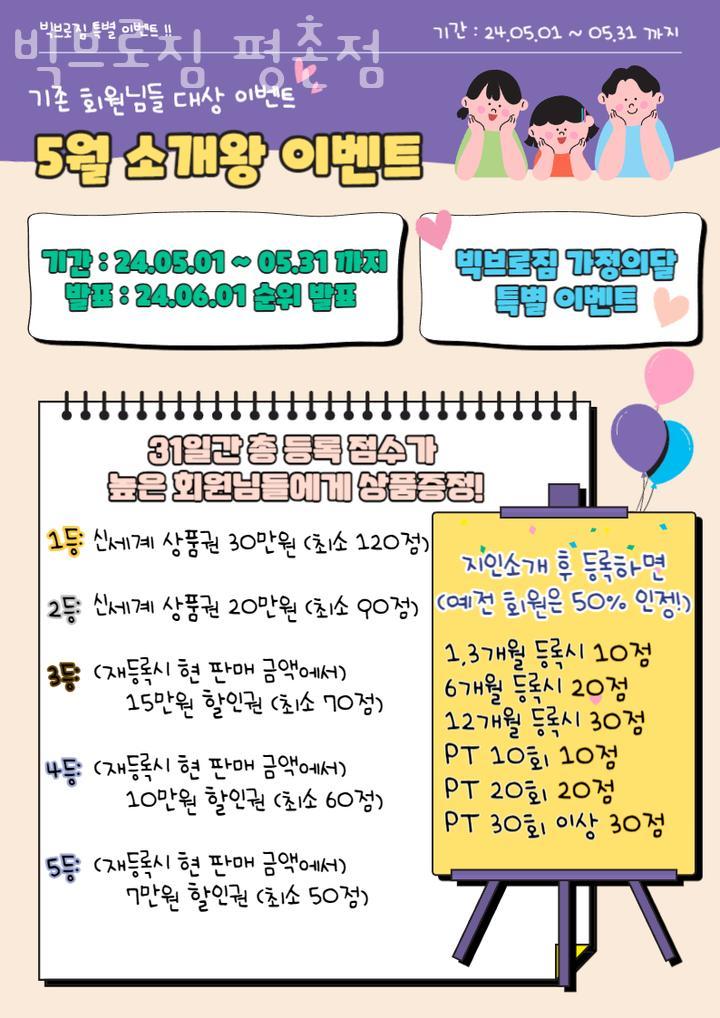 빅브로짐 특별 이벤트 !!
기간 : 24.05.01 ~ 05.31 까지
빅브로짐 평촌점
기존 회원님들 대상 이벤트
5월 소개왕 이벤트
기간 : 24.05.01 ~ 05.31 까지
발표 : 24.06.01 순위 발표
빅브로짐 가정의달
특별 이벤트
31일간 총 등록 점수가
높은 회원님들에게 상품증정!
1등: 신세계 상품권 30만원 (최소 120점)
2등: 신세계 상품권 20만원 (최소 90점)
3등: (재등록시 현 판매 금액에서)
15만원 할인권 (최소 70점)
4등: (재등록시 현 판매 금액에서)
10만원 할인권 (최소 60점)
5등: (재등록시 현 판매 금액에서)
7만원 할인권 (최소 50점)
지인소개 후 등록하면
(예전 회원은 50% 인정!)
1,3개월 등록시 10점
6개월 등록시 20점
12개월 등록시 30점
PT 10회 10점
PT 20회 20점
PT 30회 이상 30점